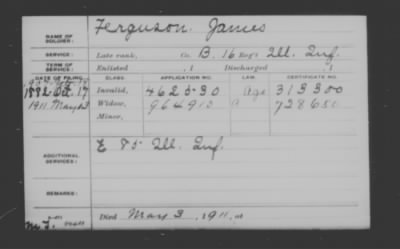 Ferguson, James
NAME OF SOLDIER:
SERVICE: Late rank, Co. B, 16 Reg't Ill. Inf.
TERM OF SERVICE: Enlisted , 1 Discharged , 1
DATE OF FILING. CLASS. APPLICATION NO. LAW. CERTIFICATE NO.
1882 Oct. 17 Invalid, 462530 Age 313300
1911 May 23 Widow, 964910 728650
Minor,
ADDITIONAL SERVICES: E 85 Ill. Inf.
REMARKS:
Died May 3, 1911, at